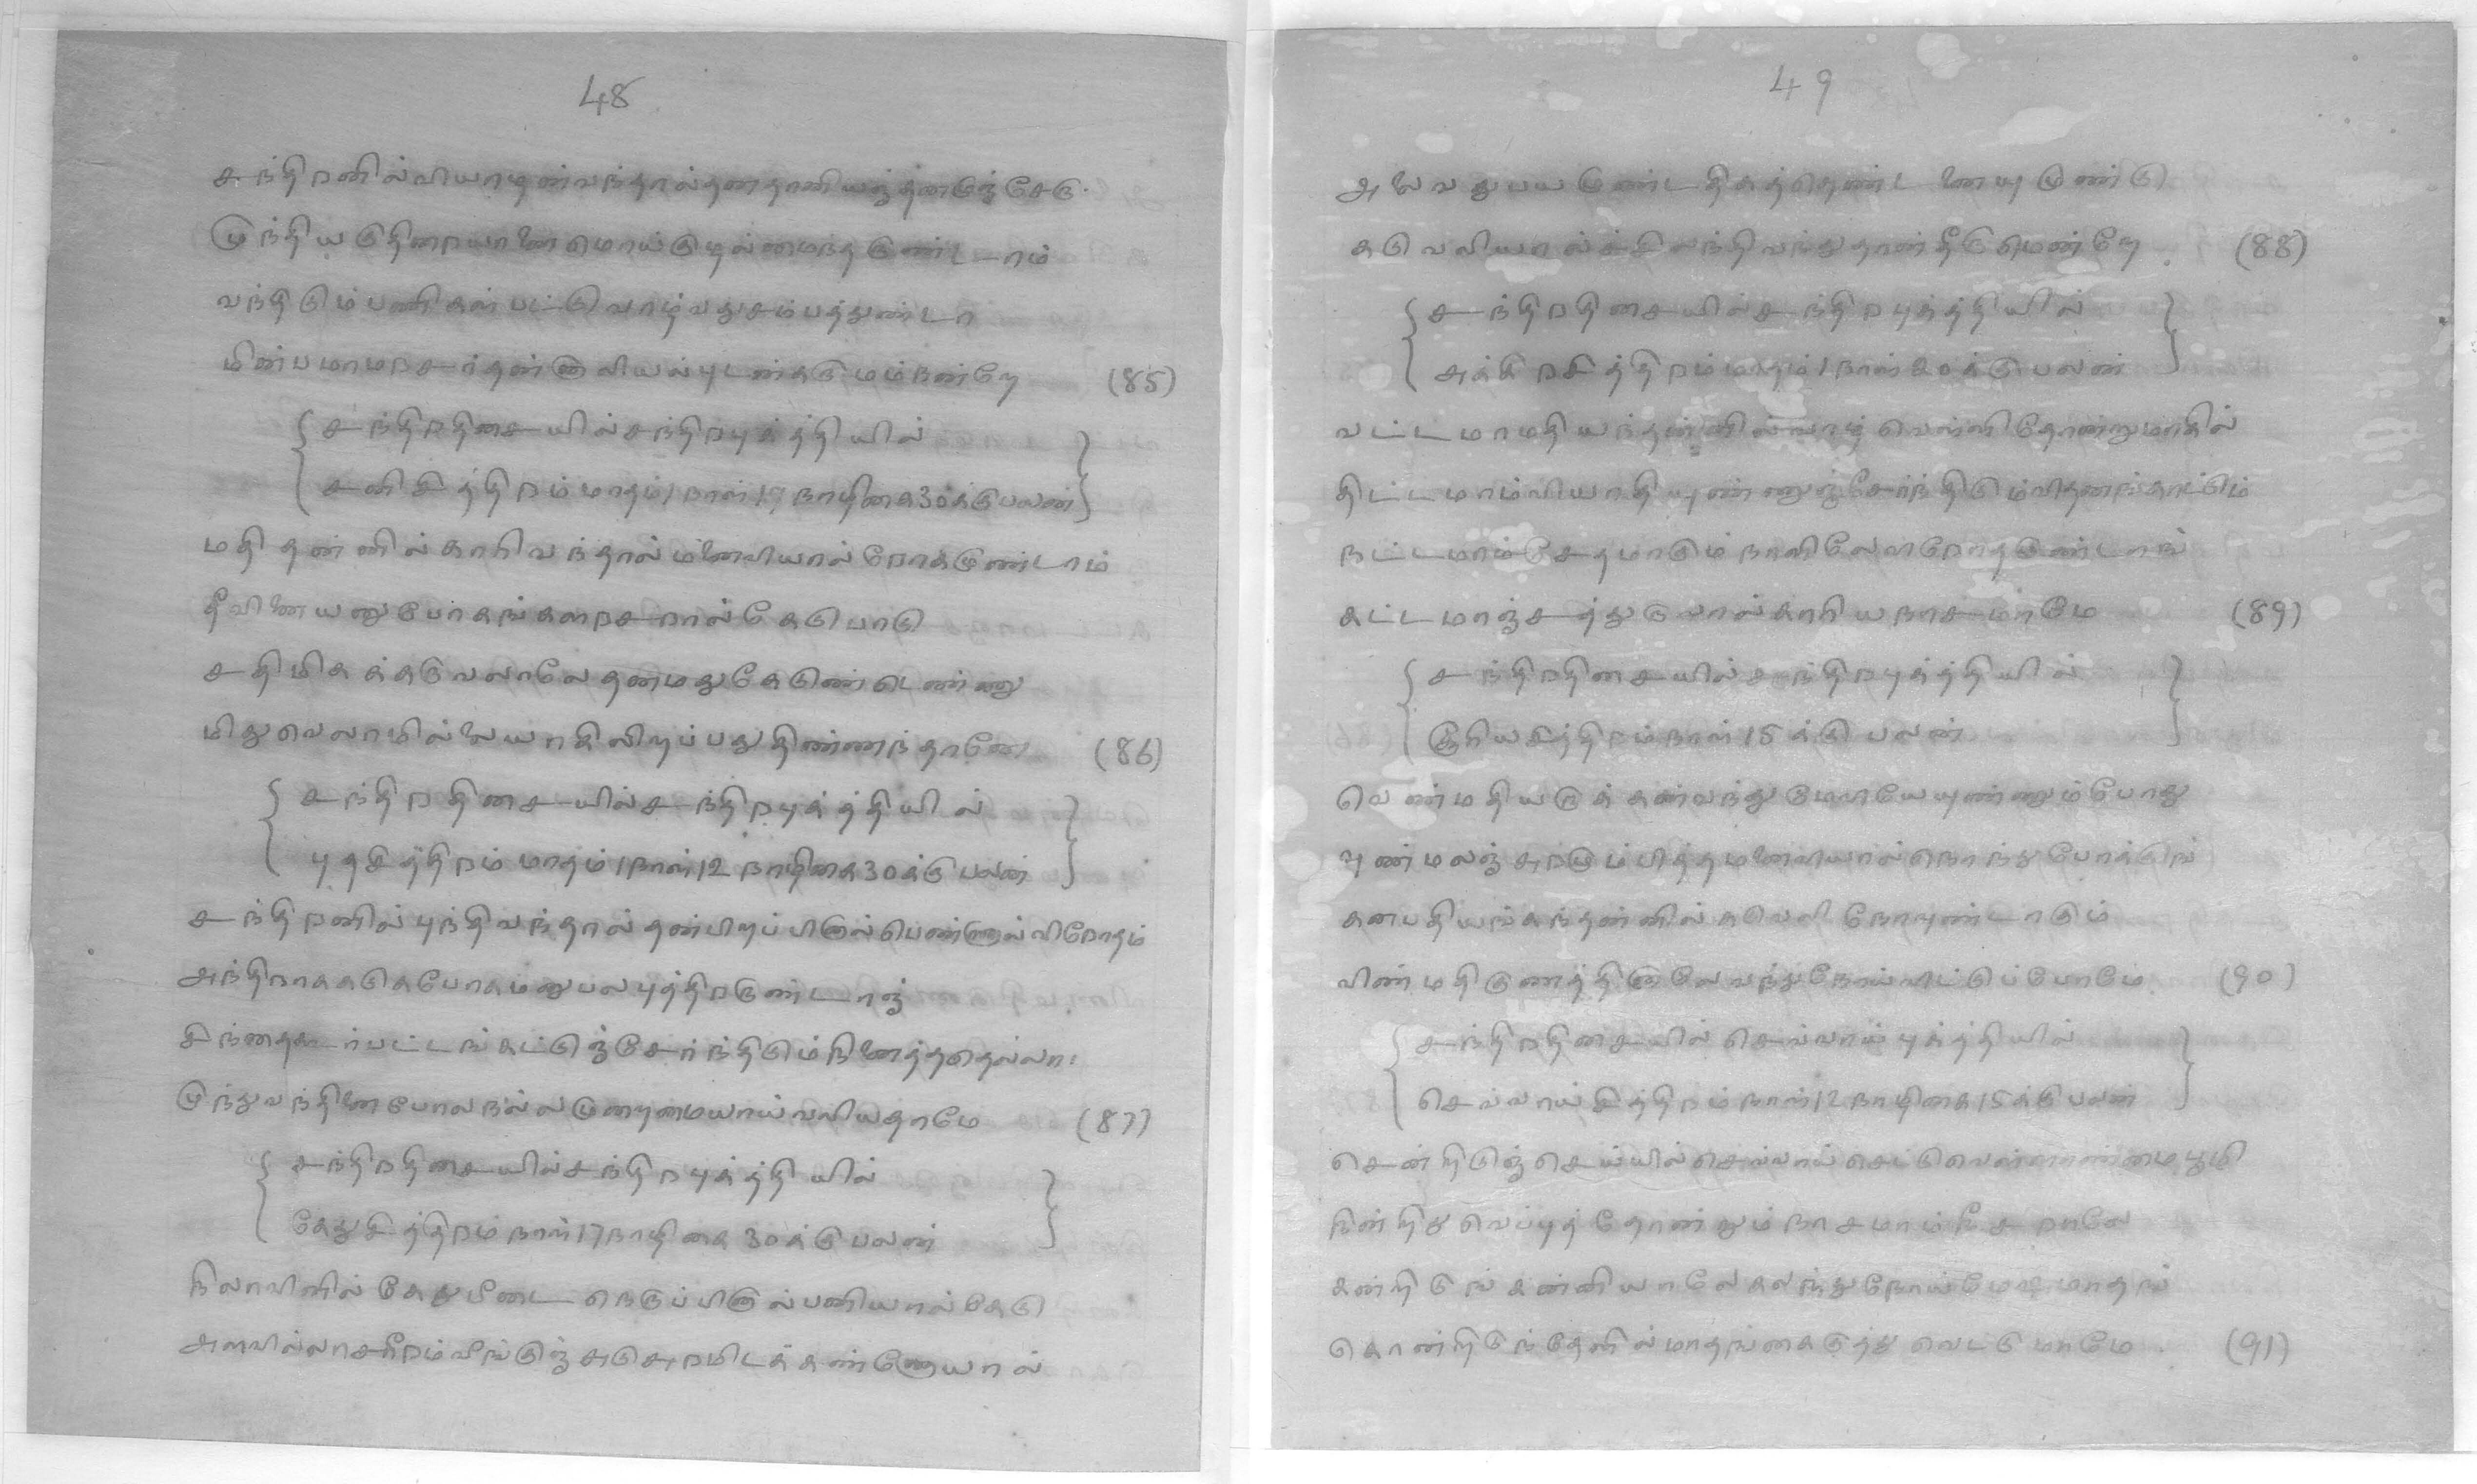 48
சந்திறனில்வியாழன்வந்தால்தனதானியந்தனமுஞ்சேரு
முந்தியகுதிறையானைமொய்குழல்மைந்தருண்டாம்
வந்திடும்பணிகள்பட்டுவாழ்வதுசம்பத்துண்டா
மின்பமாமறசர்தன்னாலியல்புடன்கருமம்நன்றே (85)
சந்திறதிசையில்சந்திறபுக்த்தியில்
சனிசித்திறம்மாதம்1நாள்17நாழிகை30க்குபலன்
மதிதன்னில்காரிவந்தால்மனைவியால்றோகமுண்டாம்
தீவினையனுபோகங்களறசறால்கேடுபாடு
சதிமிகக்கருவலாலேதனமதுகேடுண்டெண்ணு
மிதுவெலாமில்லையாகிலிறப்பதுதிண்ணந்தானே (86)
சந்திறதிசையில்சந்திறபுக்த்தியில்
புதசித்திறம்மாதம்1நாள்12நாழிகை30க்குபலன்
சந்திறனில்புந்திவந்தால்தன்பிறப்பினால்பெண்ணால்விறோதம்
அந்திறாகசுகபோகமனுபலபுத்திறருண்டாஞ்
சிந்தைகூடர்பட்டங்கட்டுஞ்சேர்ந்திடும்நினைத்ததெல்லா
முந்துவந்தினைபோலநல்லமுறைமையாய்வலியதாமே (87)
சந்திறதிசையில்சந்திறபுக்த்தியில்
கேதுசித்திறம்நாள்17நாழிகை30க்குபலன்
நிலாவினில்கேதுபீடைநெருப்பினால்பணியால்கேடு
அளவில்லாசரீறம்வீங்குஞ்சுடுசுறமிடக்கண்ணோயால்
49
அலைவதுபயமுண்டதிகத்தெண்டனையுமுண்டு
கடுவலியால்ச்சிலந்திவந்துதான்தீருமென்றே (88)
சந்திறதிசையில்சந்திறபுக்த்தியில்
அக்கிறசித்திறம்மாதம்1நாள்20க்குபலன்
வட்டமாமதியந்தன்னில்வாழ்வெள்ளிதோன்றுமாகில்
திட்டமாம்வியாதியுண்ணுஞ்சேர்ந்திடும்விதனங்காட்டும்
நட்டமாம்சேதமாகும்நாளிலேவிறோதமுண்டாங்
கட்டமாஞ்சத்துருவால்காரியநாசமாமே (89)
சந்திறதிசையில்சந்திறபுக்த்தியில்
சூரியசித்திறம்நாள்15க்குபலன்
வெண்மதியருக்கன்வந்துமேவியேயுண்ணும்போது
புண்மலஞ்சுறமும்பித்தமனைவியால்நொந்துபோக்குங்
கனபதியங்கந்தன்னில்கவெலிநோயுண்டாகும்
விண்மதிகுணத்தினாலேவந்துநோய்விட்டுப்போமே (90)
சந்திறதிசையில்செவ்வாய்புக்த்தியில்
செவ்வாய்சித்திறம்நாள்12நாழிகை15க்குபலன்
சென்றிடுஞ்செய்யில்செவ்வாய்செட்டுவெள்ளாண்மைபூமி
நின்றிதுவெப்புத்தோண்றும்நாசமாம்நீசறாலே
கன்றிடுங்கன்னியாலேகலந்துநோய்மேவுமாதங்
கொன்றிடுந்தேளில்மாதங்கைகுத்துவெட்டுமாமே (91)